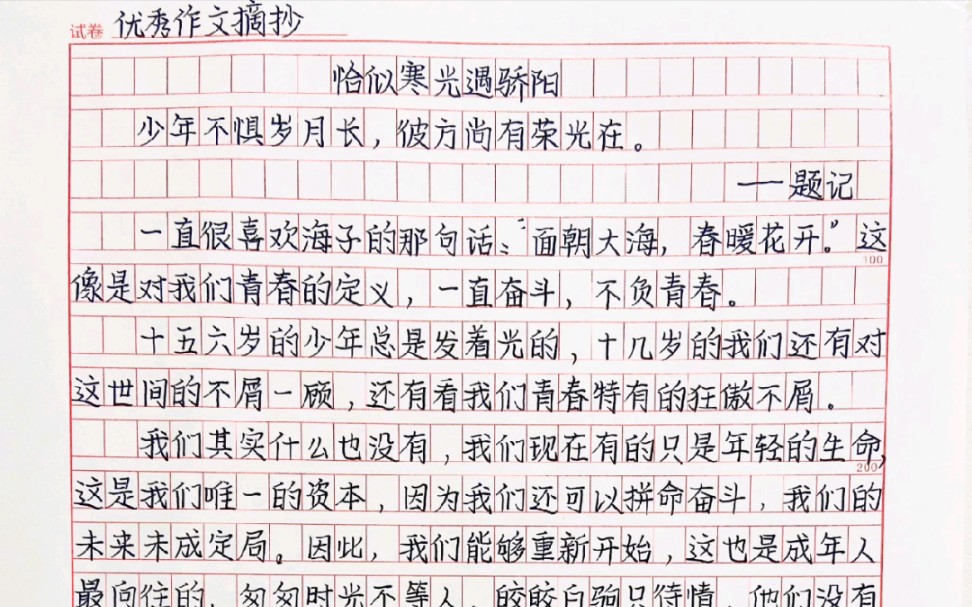 试卷 优秀作文摘抄
恰似寒光遇骄阳
少年不惧岁月长，彼方尚有荣光在。
——题记
一直很喜欢海子的那句话：“面朝大海，春暖花开。”这
100
像是对我们青春的定义，一直奋斗，不负青春。
十五六岁的少年总是发着光的，十几岁的我们还有对
这世间的不屑一顾，还有着我们青春特有的狂傲不屑。
我们其实什么也没有，我们现在有的只是年轻的生命，
200
这是我们唯一的资本，因为我们还可以拼命奋斗，我们的
未来未成定局。因此，我们能够重新开始，这也是成年人
最向往的。匆匆时光不等人，皎皎白驹只待情，他们没有